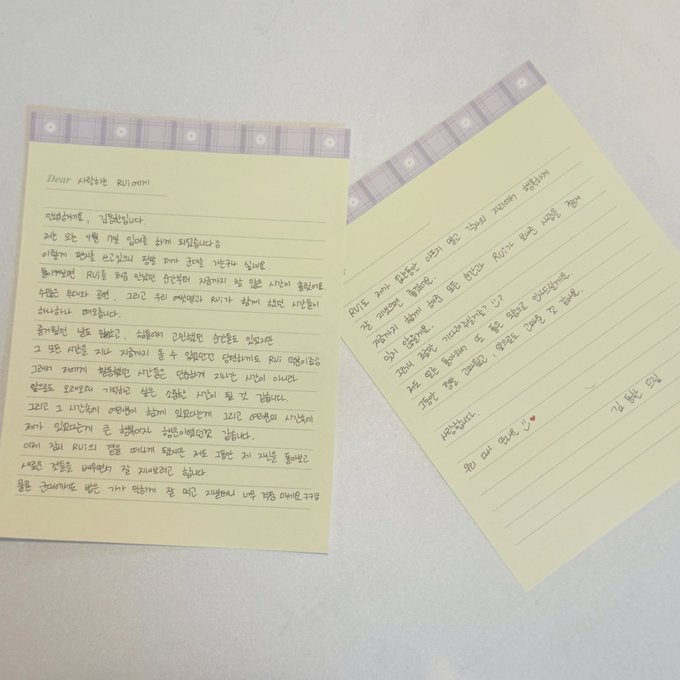 Dear 사랑하는 RUi에게
안녕하세요, 김동한입니다.
저는 오는 4월 7일 입대를 하게 되었습니다
이렇게 편지를 쓰고있으니 정말 제가 군대를 가는구나 싶네요
돌이켜보면 RUi를 처음 만났던 순간부터 지금까지 참 많은 시간이 흘렀어요
수많은 무대와 공연, 그리고 우리 여섯명과 RUi가 함께 했던 시간들이
하나하나 떠오릅니다.
즐거웠던 날도 많았고, 힘들어서 고민했던 순간들도 있었지만
그 모든 시간을 지나 지금까지 올 수 있었던건 당연하게도 RUi 덕분이죠
그래서 저에게 활동했던 시간들은 단순하게 지나간 시간이 아니라
앞으로도 오래오래 기억하고 싶은 소중한 시간이 될 것 같습니다.
그리고 그 시간속에 여러분이 함께 있었다는게 그리고 여러분의 시간속에
제가 있었다는게 큰 행복이자 행운이었던것 같습니다.
이제 잠시 RUi의 곁을 떠나게 됐지만 저도 그동안 제 자신을 돌아보고
새로운 것들을 배우면서 잘 지내보려고 합니다
물론 군대에서도 밥은 기가 막히게 잘 먹고 지낼테니 너무 걱정 마세요 ㅋㅋㅋ
RUi도 제가 없는동안 아프지 말고 각자의 자리에서 행복하게
잘 지냈으면 좋겠어요.
지금까지 함께 해온 모든 순간과 RUi가 보내준 사랑을 절대
잊지 않을게요.
그래서 조금만 기다려주실거죠?
저도 또는 돌아와서 또 좋은 모습으로 인사드릴게요
그동안 정말 고마웠고, 앞으로도 고마울 것 같아요.
사랑합니다.
우리 또 만나요 ♥
김동한 드림